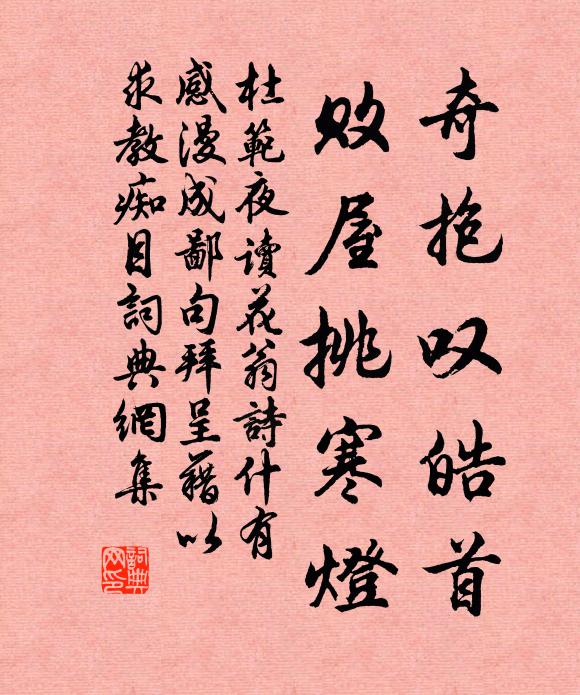 奇抱叹皓首
败屋挑寒燈
杜範夜讀花翁詩什有
感漫成鄙句拜呈藉以
求教痴目詞典網集
詞典网印